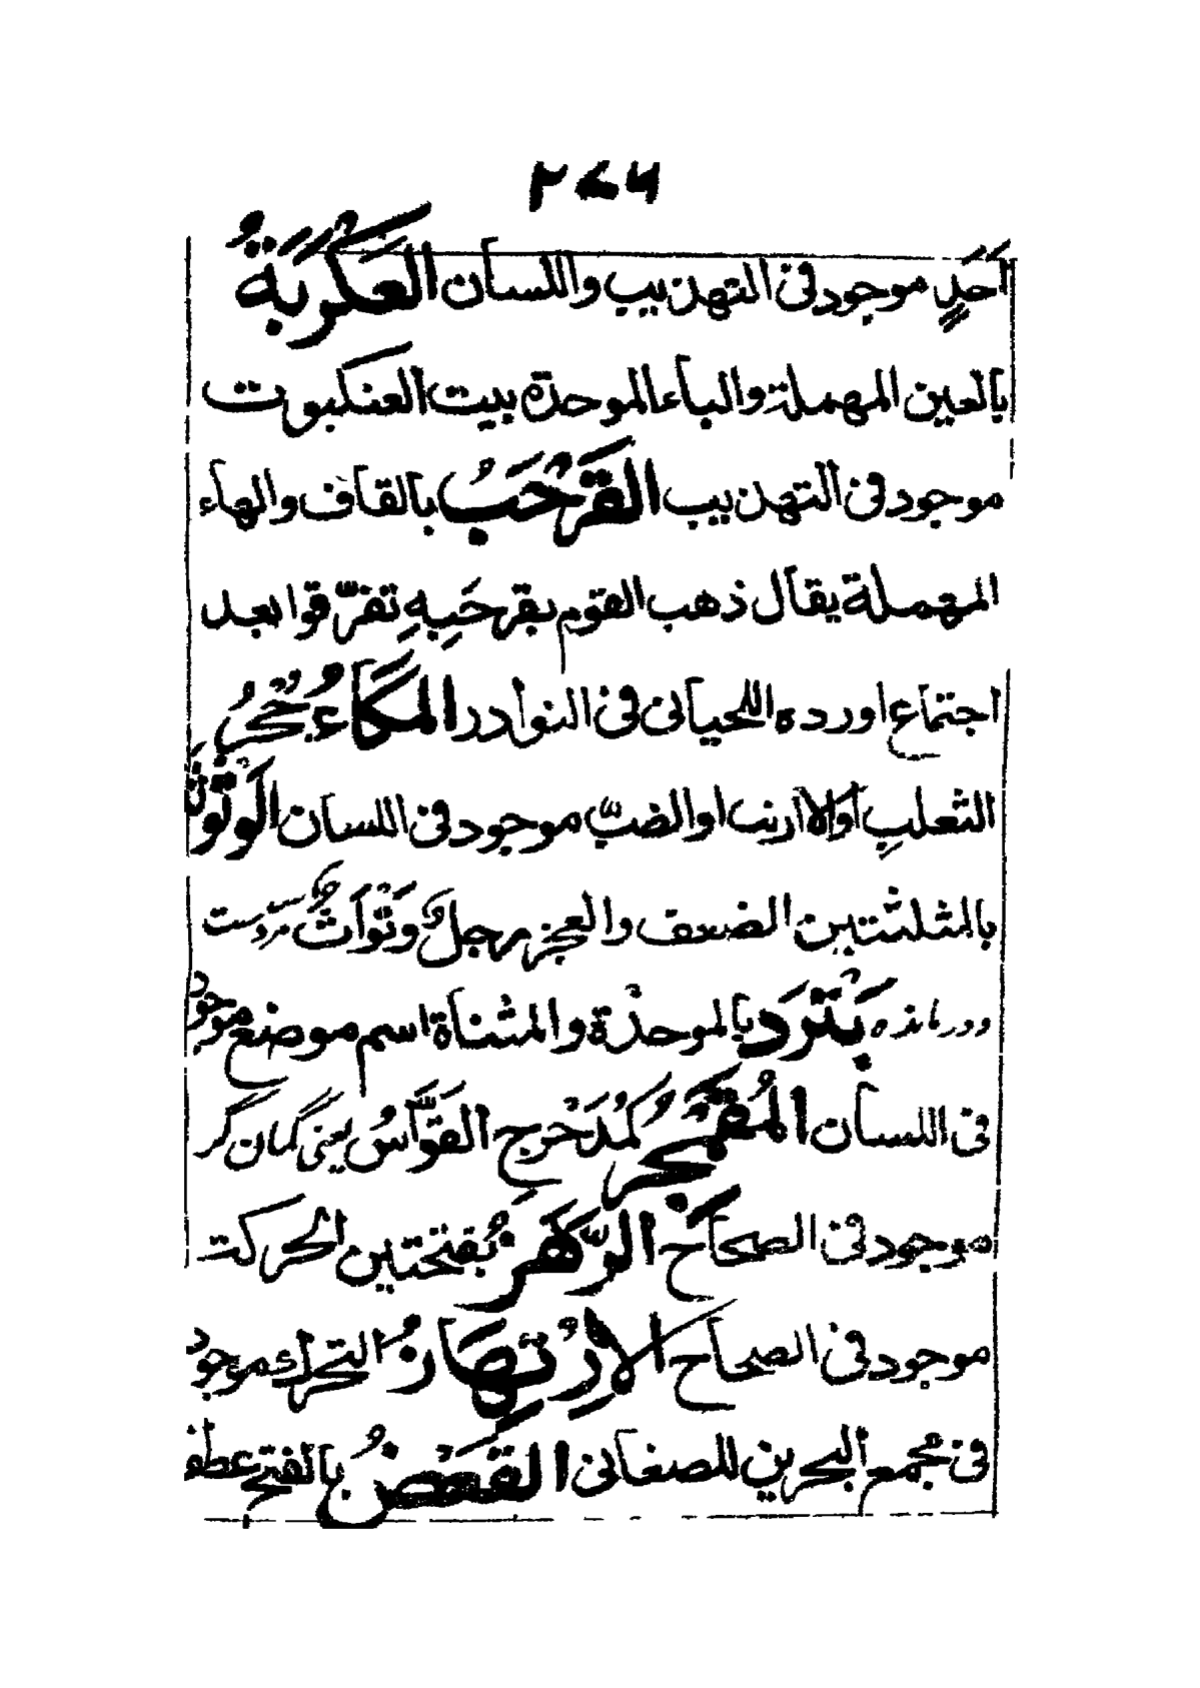 ٢٧٦
أَحَدٍ موجود في التهذيب واللسان العَكْرَبَةُ
بالعين المهملة والباء الموحدة بيت العنكبوت
موجود في التهذيب القَرْحَبُ بالقاف والهاء
المهملة يقال ذهب القوم بقرحَبِهِ تفرّقوا بعد
اجتماع اورده اللحياني في النوادر المَكَاءُ جُحْرُ
الثعلبِ أو الارنب او الضبّ موجود في اللسان الوَثْوَثَةُ
بالمثلثتين الضعف والعجز رجلٌ وَثْوَاثٌ مرد سست
ودرمانده بَتْرَد بالموحدة والمثناة اسم موضع موجود
في اللسان المُقَمْجِرُ كمُدَحْرِج القَوَّاسُ يعني كمان گر
موجود في الصحاح الوَّهَرُ بفتحتين الحركت
موجود في الصحاح الارْتِهَازُ التحرك موجود
في مجمع البحرين للصغاني القَعْضُ بالفتح عطف